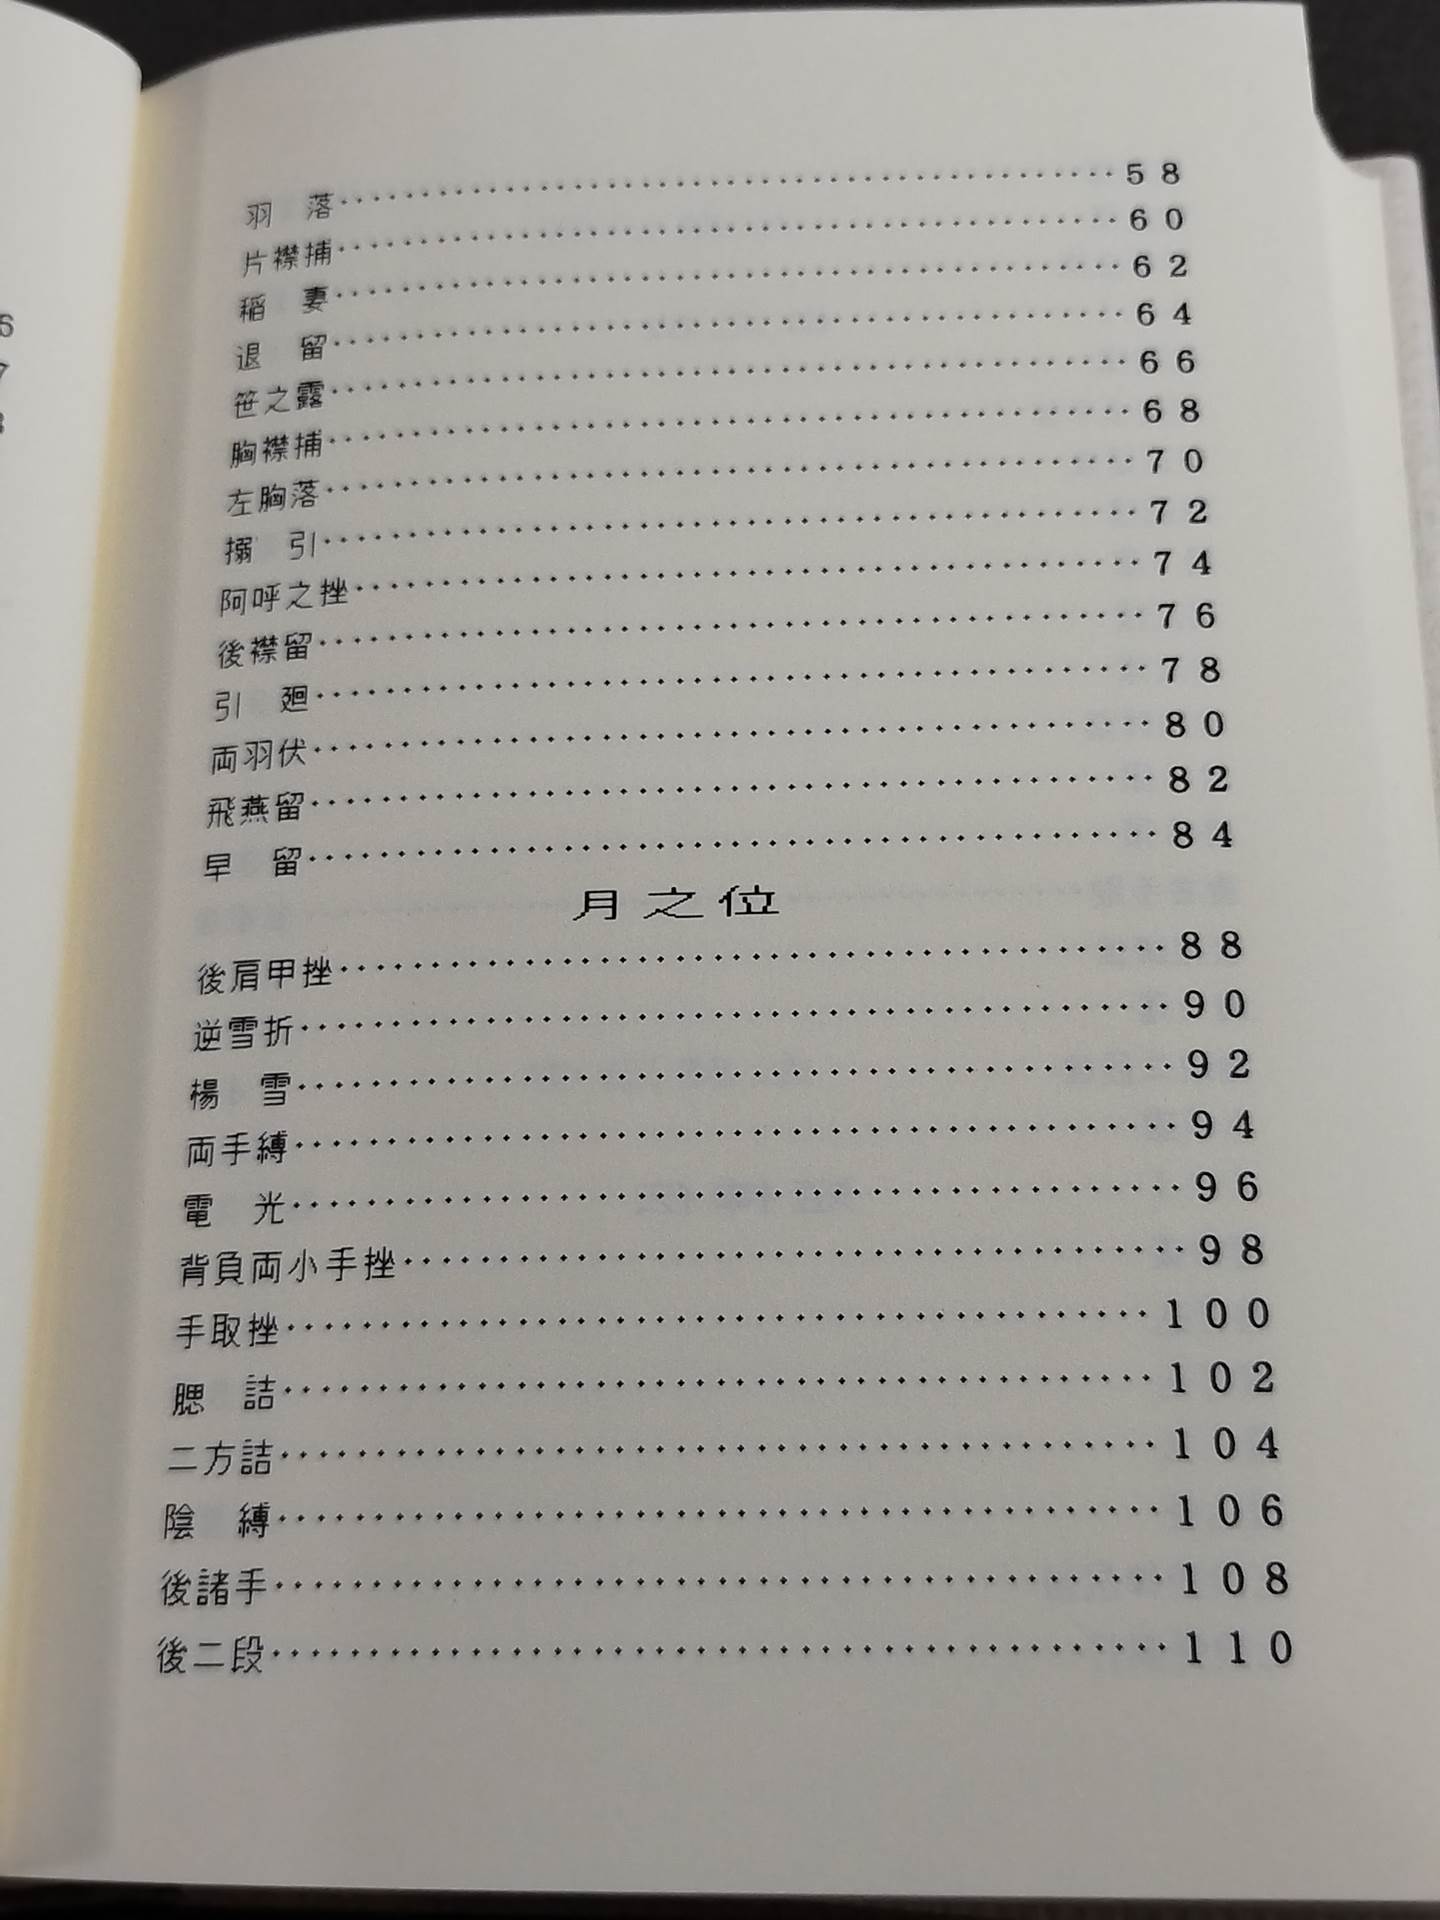 羽　落‥‥‥‥‥‥‥‥‥‥‥‥‥‥‥‥‥‥５８
片襟捕‥‥‥‥‥‥‥‥‥‥‥‥‥‥‥‥‥‥６０
稲　妻‥‥‥‥‥‥‥‥‥‥‥‥‥‥‥‥‥‥６２
退　留‥‥‥‥‥‥‥‥‥‥‥‥‥‥‥‥‥‥６４
笹之露‥‥‥‥‥‥‥‥‥‥‥‥‥‥‥‥‥‥６６
胸襟捕‥‥‥‥‥‥‥‥‥‥‥‥‥‥‥‥‥‥６８
左胸落‥‥‥‥‥‥‥‥‥‥‥‥‥‥‥‥‥‥７０
搦　引‥‥‥‥‥‥‥‥‥‥‥‥‥‥‥‥‥‥７２
阿呼之挫‥‥‥‥‥‥‥‥‥‥‥‥‥‥‥‥‥７４
後襟留‥‥‥‥‥‥‥‥‥‥‥‥‥‥‥‥‥‥７６
引　廻‥‥‥‥‥‥‥‥‥‥‥‥‥‥‥‥‥‥７８
両羽伏‥‥‥‥‥‥‥‥‥‥‥‥‥‥‥‥‥‥８０
飛燕留‥‥‥‥‥‥‥‥‥‥‥‥‥‥‥‥‥‥８２
早　留‥‥‥‥‥‥‥‥‥‥‥‥‥‥‥‥‥‥８４
月之位
後肩甲挫‥‥‥‥‥‥‥‥‥‥‥‥‥‥‥‥‥８８
逆雪折‥‥‥‥‥‥‥‥‥‥‥‥‥‥‥‥‥‥９０
楊　雪‥‥‥‥‥‥‥‥‥‥‥‥‥‥‥‥‥‥９２
両手縛‥‥‥‥‥‥‥‥‥‥‥‥‥‥‥‥‥‥９４
電　光‥‥‥‥‥‥‥‥‥‥‥‥‥‥‥‥‥‥９６
背負両小手挫‥‥‥‥‥‥‥‥‥‥‥‥‥‥‥９８
手取挫‥‥‥‥‥‥‥‥‥‥‥‥‥‥‥‥‥１００
腮　詰‥‥‥‥‥‥‥‥‥‥‥‥‥‥‥‥‥１０２
二方詰‥‥‥‥‥‥‥‥‥‥‥‥‥‥‥‥‥１０４
陰　縛‥‥‥‥‥‥‥‥‥‥‥‥‥‥‥‥‥１０６
後諸手‥‥‥‥‥‥‥‥‥‥‥‥‥‥‥‥‥１０８
後二段‥‥‥‥‥‥‥‥‥‥‥‥‥‥‥‥‥１１０